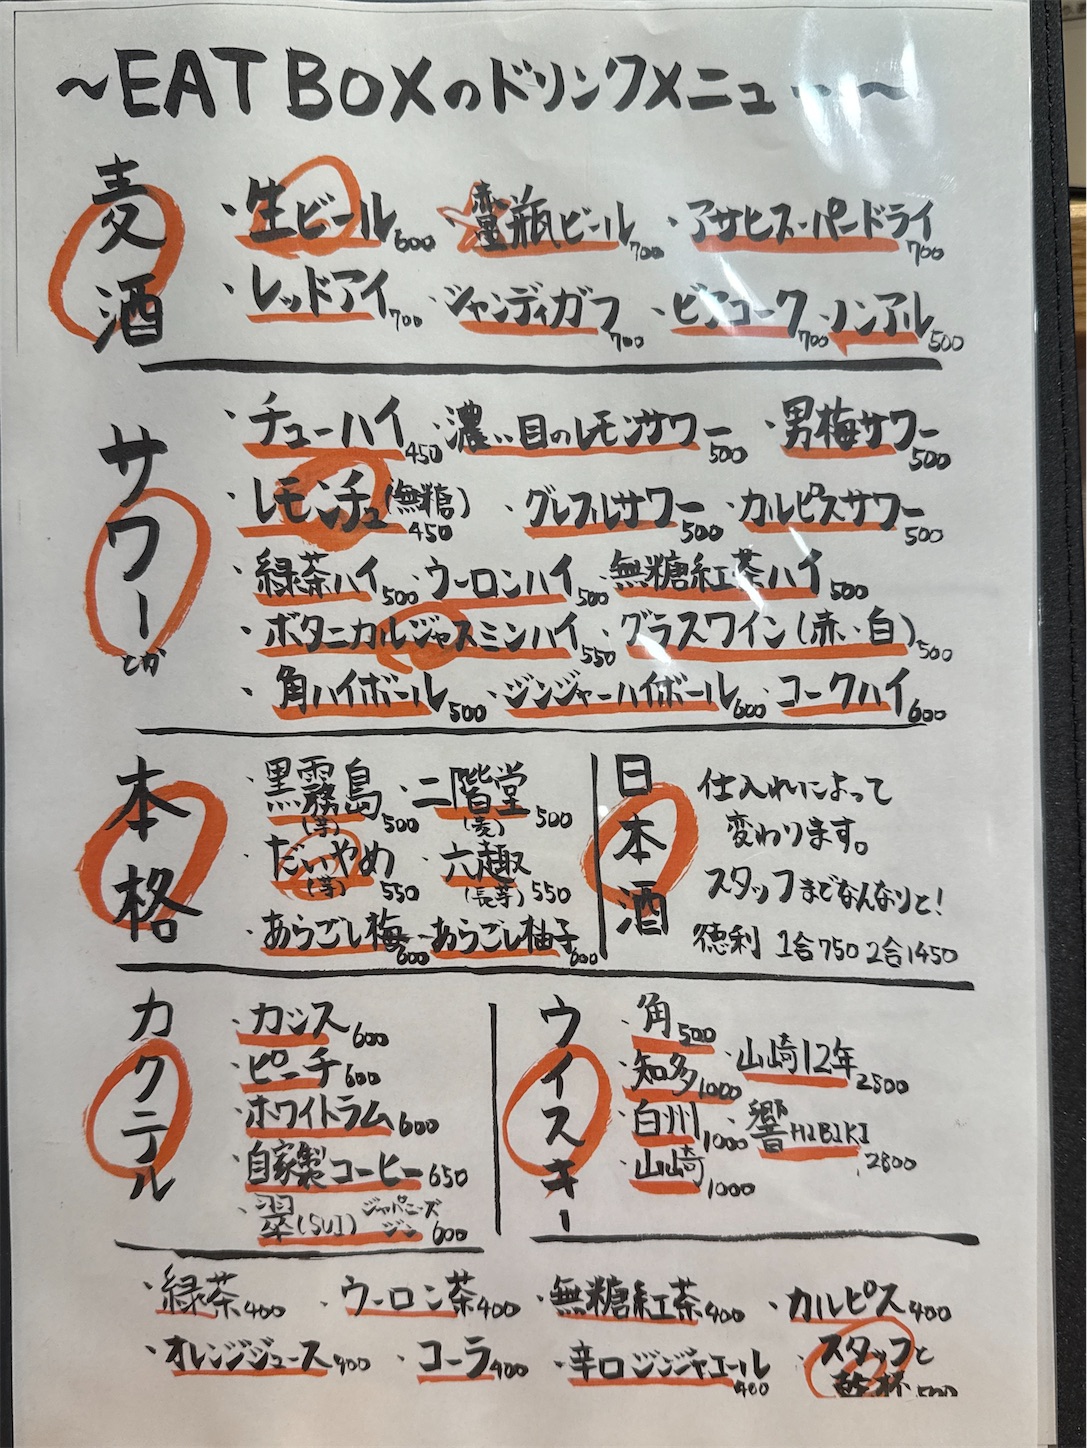 ～EAT BOXのドリンクメニュー～
麦酒
・生ビール600 ・瓶ビール700 ・アサヒスーパードライ700
・レッドアイ700 ・シャンディガフ700 ・ビアコーク700 ・ノンアル500
サワーとか
・チューハイ450 ・濃い目のレモンサワー500 ・男梅サワー500
・レモンチュ(無糖)450 ・グレフルサワー500 ・カルピスサワー500
・緑茶ハイ500 ・ウーロンハイ500 ・無糖紅茶ハイ500
・ボタニカルジャスミンハイ550 ・グラスワイン(赤い白)500
・角ハイボール500 ・ジンジャーハイボール600 ・コークハイ600
本格
・黒霧島(芋)500 ・二階堂(麦)500
・だいやめ(芋)550 ・六趣(長芋)550
・あらごし梅600 ・あらごし柚子600
日本酒
仕入れによって
変わります。
スタッフまでなんなりと!
徳利 1合750 2合1450
カクテル
・カシス600
・ピーチ600
・ホワイトラム600
・自家製コーヒー650
・翠(SUI)ジャパニーズジン600
ウイスキー
・角500
・知多1000 ・山崎12年2800
・白州1000 ・響HIBIKI2800
・山崎1000
・緑茶400 ・ウーロン茶400 ・無糖紅茶400 ・カルピス400
・オレンジジュース400 ・コーラ400 ・辛口ジンジャエール400 ・スタッフと乾杯500